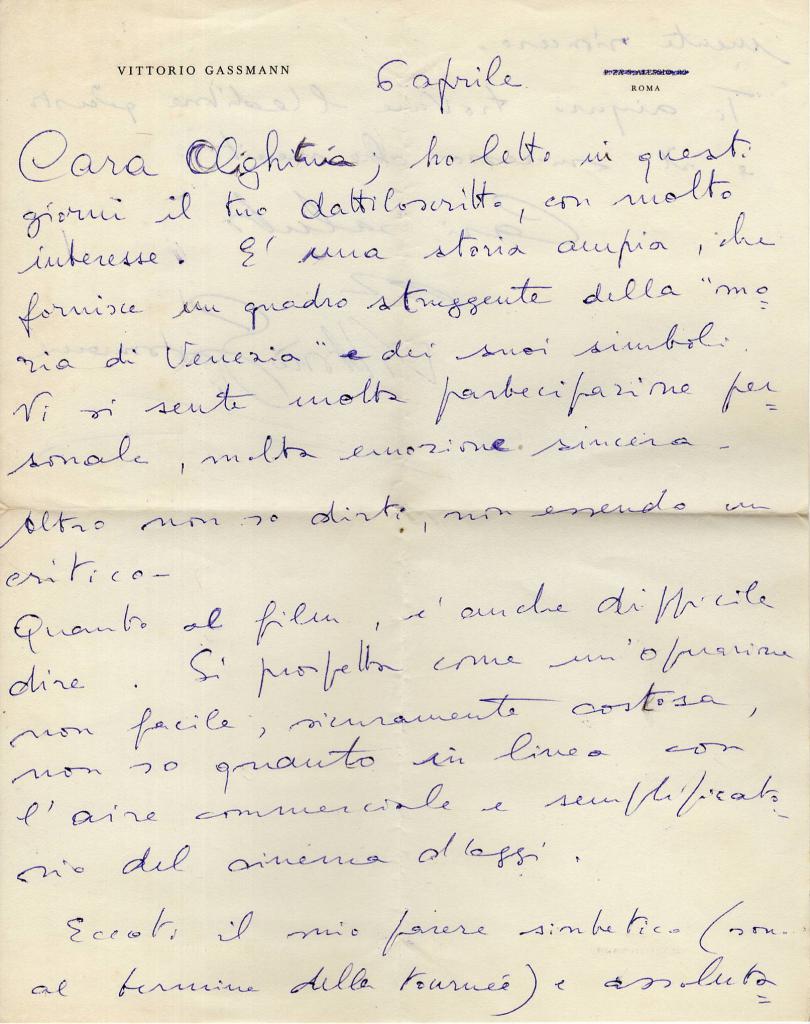 VITTORIO GASSMANN
6 aprile
ROMA
Cara Olghina, ho letto in questi
giorni il tuo dattiloscritto, con molto
interesse. E' una storia ampia, che
fornisce un quadro struggente della "mo=
ria di Venezia" e dei suoi simboli.
Vi si sente molta partecipazione per=
sonale, molta emozione sincera -
Altro non so dirti, non essendo un
critico -
Quanto al film, e' anche difficile
dire. Si prospetta come un'operazione
non facile, sicuramente costosa,
non so quanto in linea con
l'aire commerciale e semplificato=
rio del cinema d'oggi.
Eccoti il mio parere sintetico (sono
al termine della tournée) e assoluta=